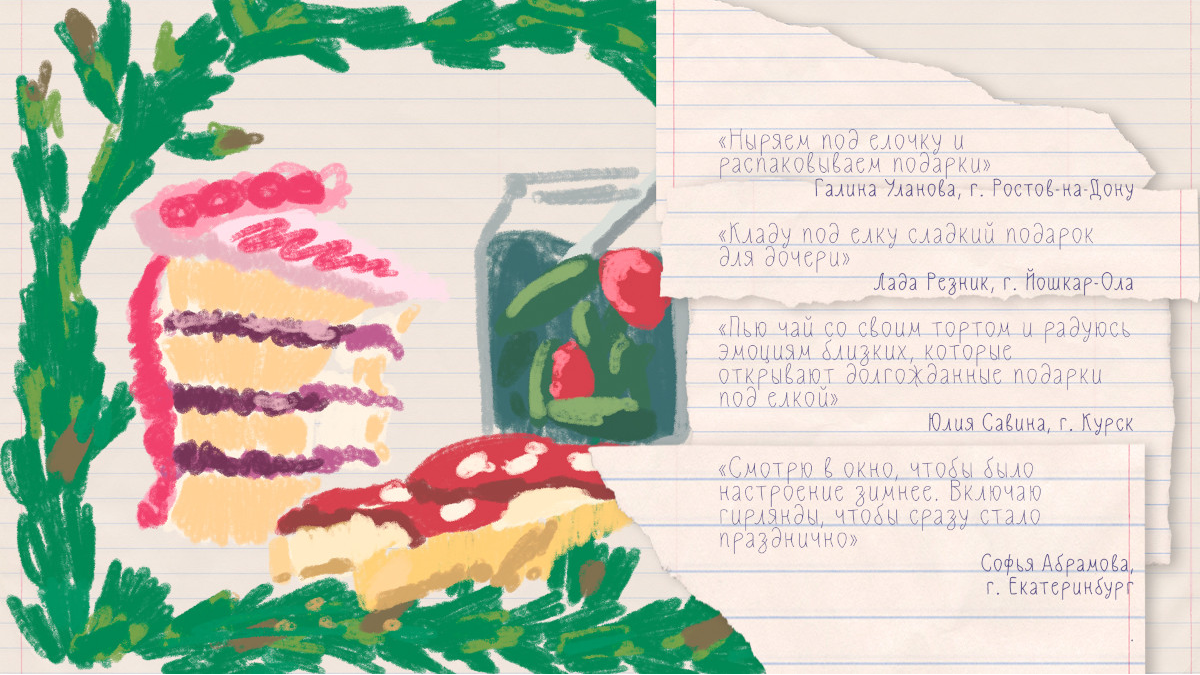 «Ныряем под елочку и
распаковываем подарки»
Галина Уланова, г. Ростов-на-Дону
«Кладу под елку сладкий подарок
для дочери»
Лада Резник, г. Йошкар-Ола
«Пью чай со своим тортом и радуюсь
эмоциям близких, которые
открывают долгожданные подарки
под елкой»
Юлия Савина, г. Курск
«Смотрю в окно, чтобы было
настроение зимнее. Включаю
гирлянды, чтобы сразу стало
празднично»
Софья Абрамова,
г. Екатеринбург